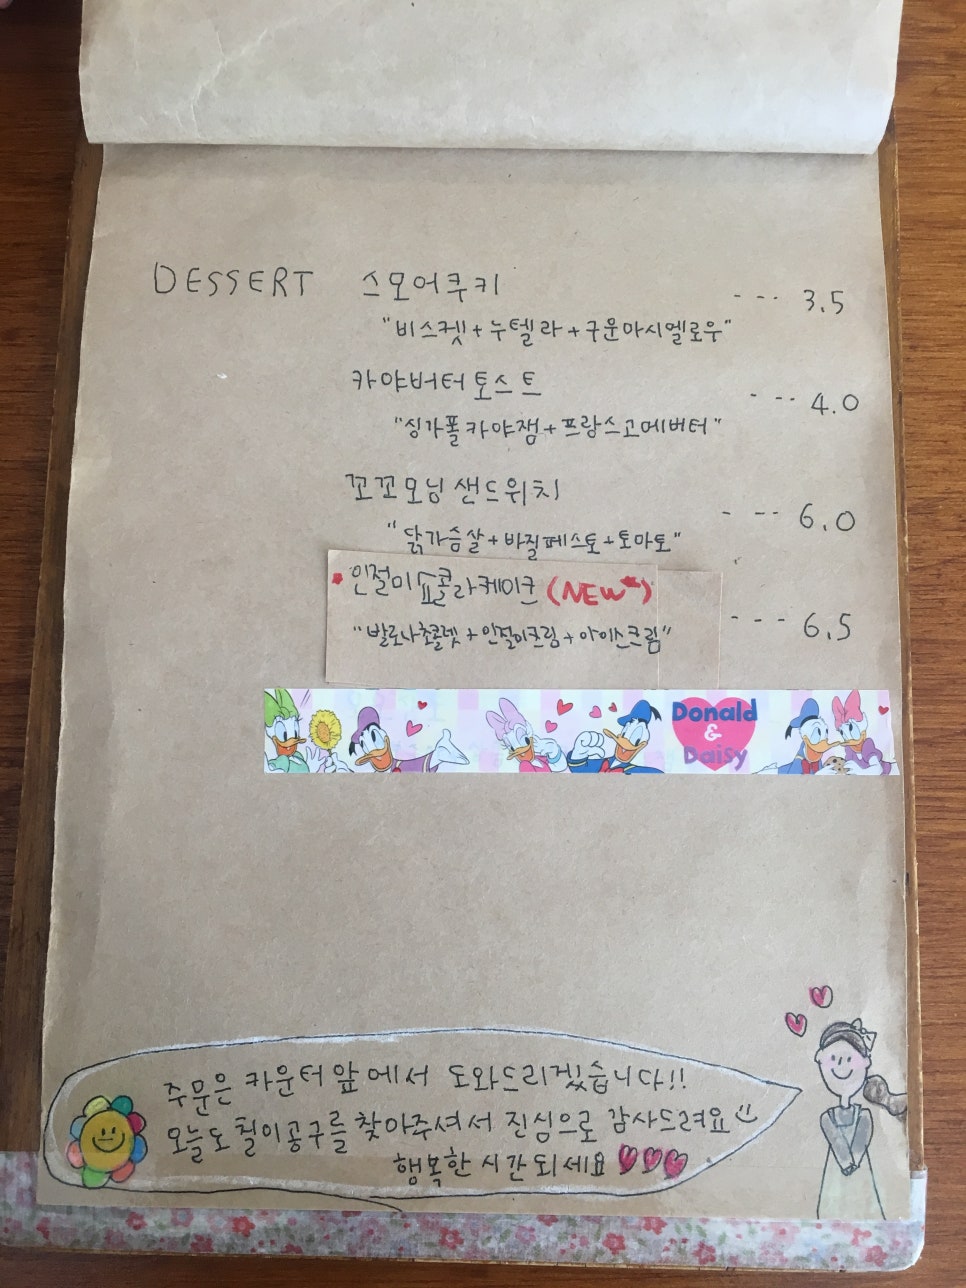 DESSERT 스모어쿠키 --- 3.5
"비스켓+누텔라+구운마시멜로우"
카야버터토스트 --- 4.0
"싱가폴카야잼+프랑스고메버터"
꼬꼬모닝샌드위치 --- 6.0
"닭가슴살+바질페스토+토마토"
인절미쇼콜라케이크 (NEW*) --- 6.5
"발로나초콜렛+인절미크림+아이스크림"
Donald
&
Daisy
주문은 카운터 앞에서 도와드리겠습니다!!
오늘도 철이공구를 찾아주셔서 진심으로 감사드려요
행복한 시간되세요